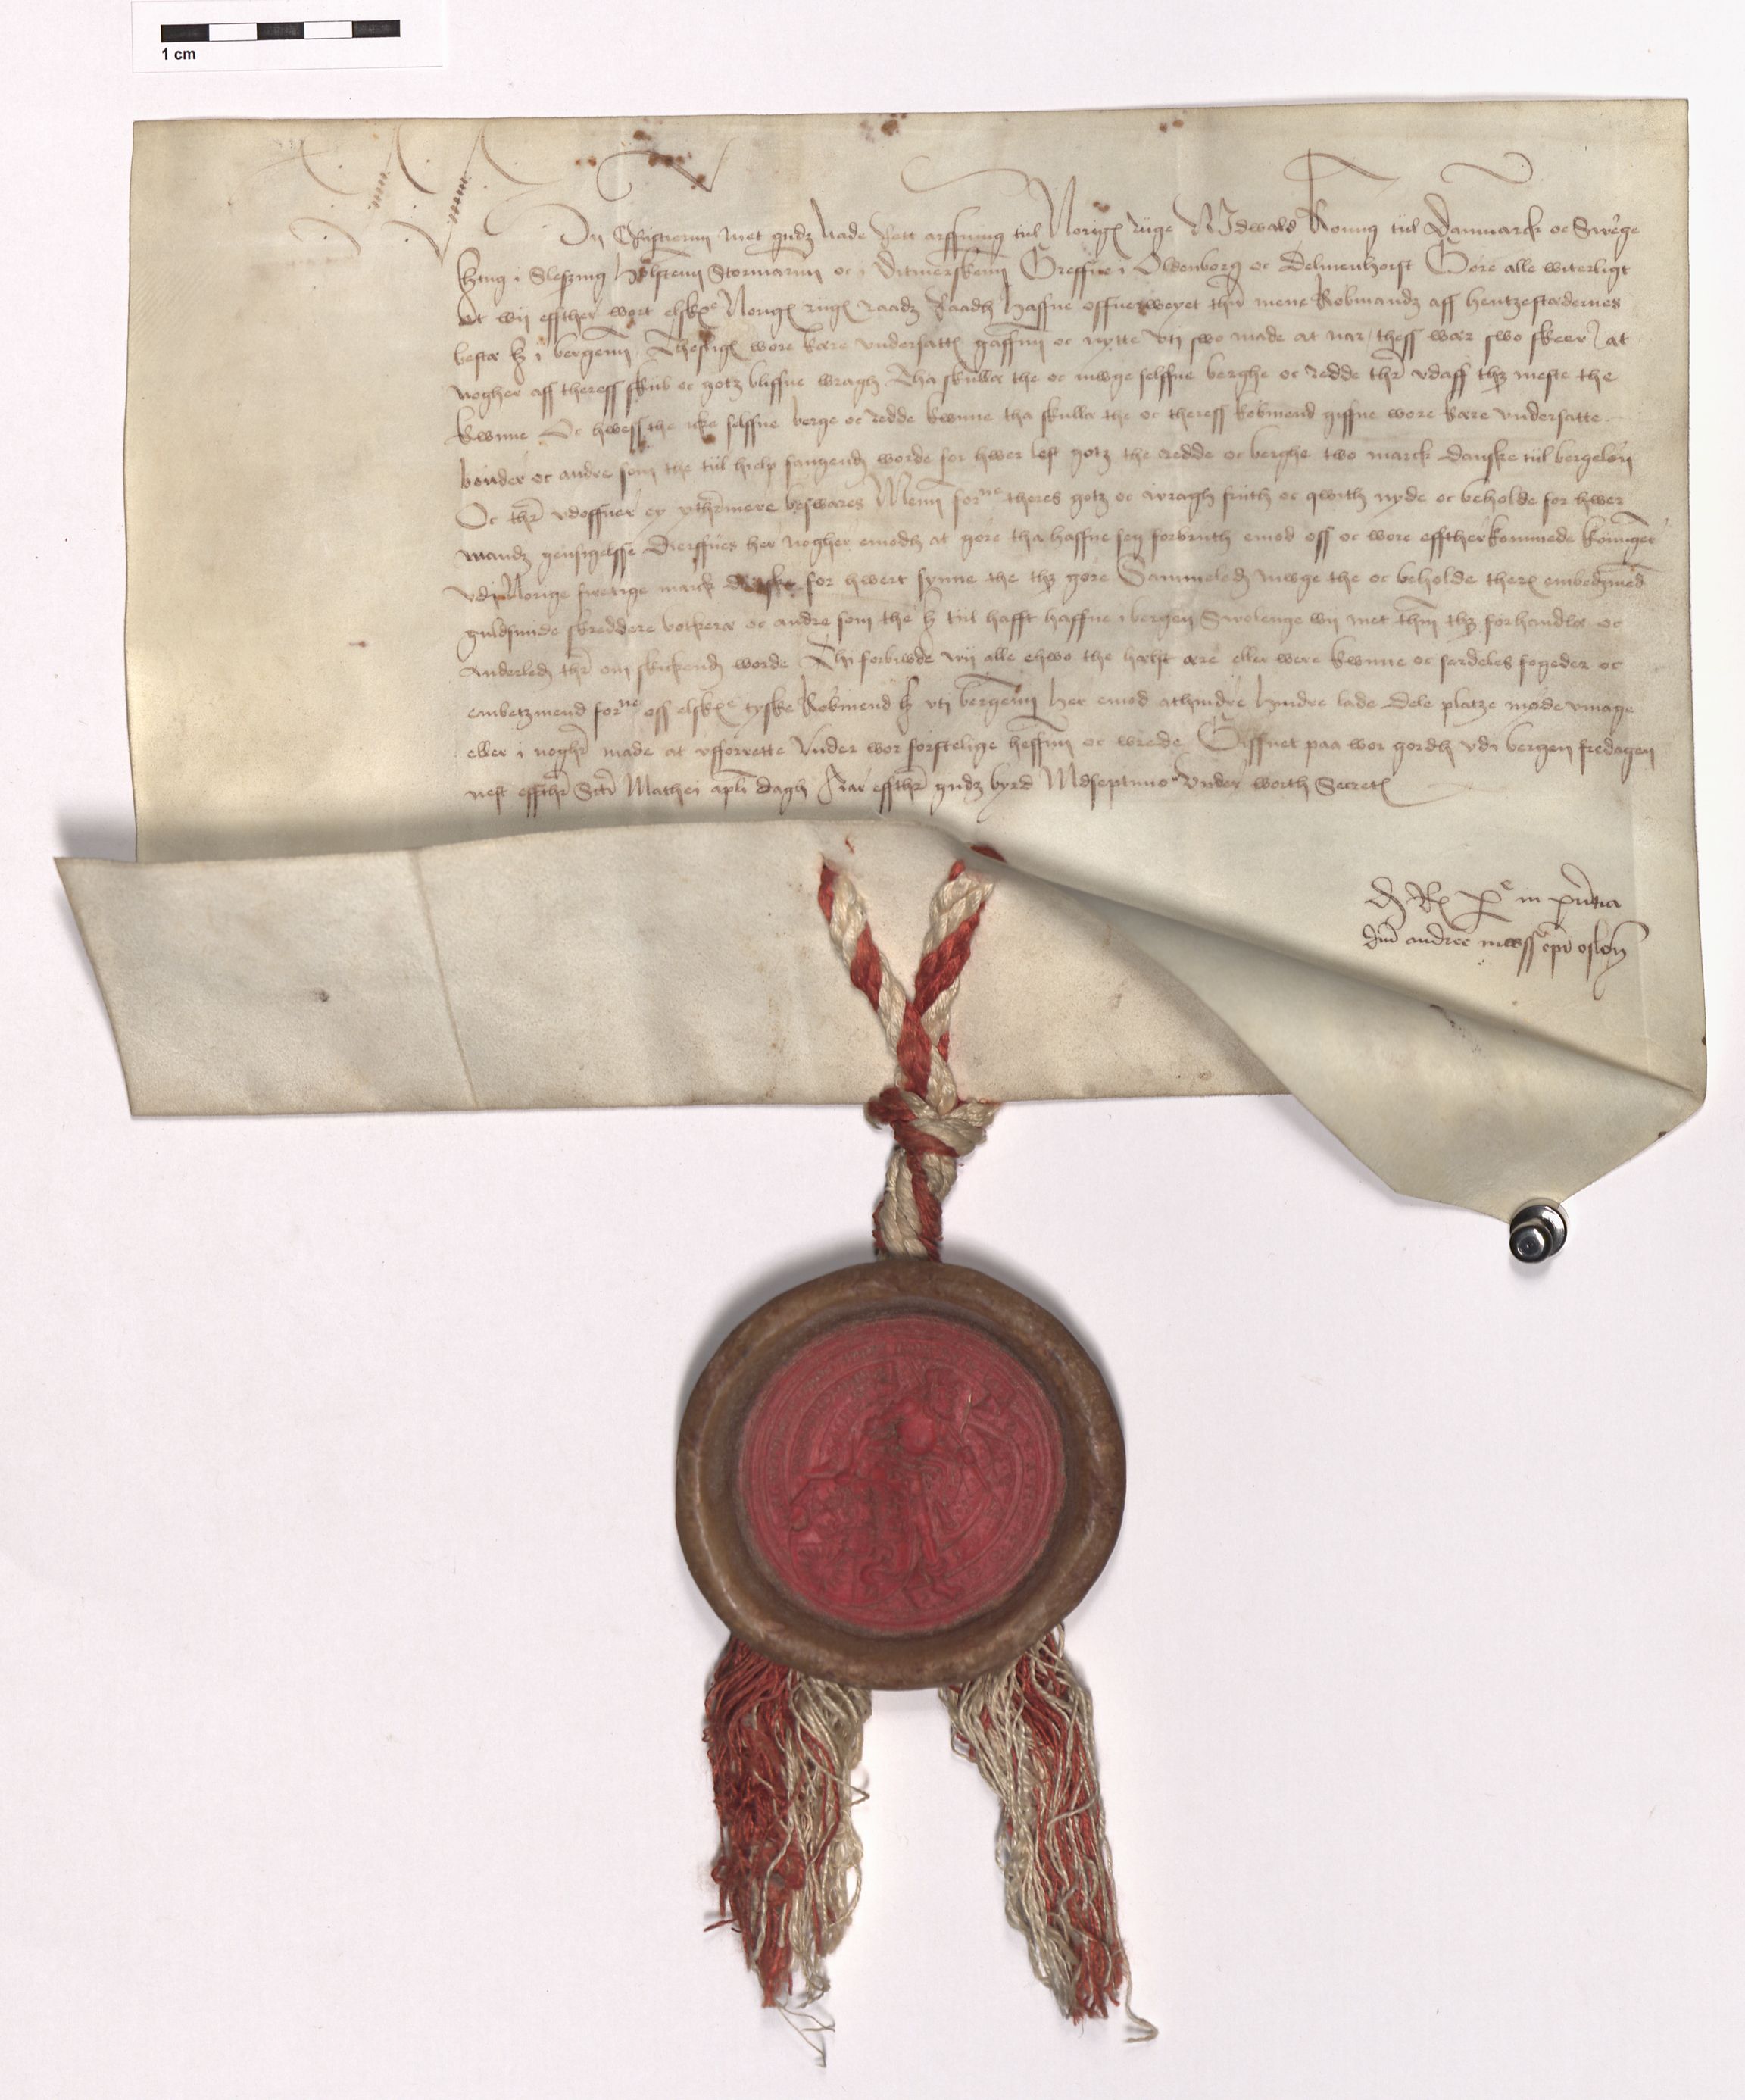 1 cm
Wij Christiern met gudz nade Rett arffuing till Norigs riige Vdwald Konnig till Danmarck oc Swerige
hertug i Sleszuig Holstenn Stormarnn oc i Ditmerskenn Greffue i Oldenborg oc Delmenhorst Göre alle witerligt
At wij effther wort elskes Norigs riigs raadz Raadh haffue offuerweyet thn mene Købmandz aff hentzestædernes
besta her i bergenn Thesligs wore kære vndersatts gaffnn oc nytte vti swo made at nar thess waar swo skeer at
nogher aff theress skiib oc gotz bliffue wragh Tha skulla the oc mwge selffue berghe oc redde thr vdaff thz meste the
kwnne Oc hwess the icke selffue berge oc redde kwnne tha skulla the oc theress købmend giffue wore kære vndersatte
bønder oc andre som the till hielp fangend worde for hwer lest gotz the redde oc berghe two marck danske till bergeløn
Oc thr vdoffuer ey ythermere beswares Menn forne theres gotz oc wragh friith oc qwith nyde oc beholde for hwer
mandz gensigelsse Dierffues her nogher emodh at göre tha haffue seg forbruth emod oss oc wore effther kommede konniger
vdi Norige firetige marck danske for hwert synne the thz göre Sammeleds mwge the oc beholde thers embedzmend
guldsmide skreddere botkera oc andre som the her till hafft haffue i bergen Swolenge wij met thm thz forhandla oc
Anderleds thr om skickends worde Thi forbiwde wij alle ehwo the helst ære eller were kwnne oc serdeles fogeder oc
embetzmend forne oss elskes tyske Købmend her vti bergenn her emod athindre hindre lade dele platze møde vmage
eller i noghr made at vfforrette Vnder wor forstelige heffnn oc wrede Giffuet paa wor gordh vdi bergen fredagen
nest effthr Scti Mathei apli dagh Aar effthr gudz byrd Mdseptimo Vnder worth Secrets
D Rx per in pntia
dni andree mwss epi oslen